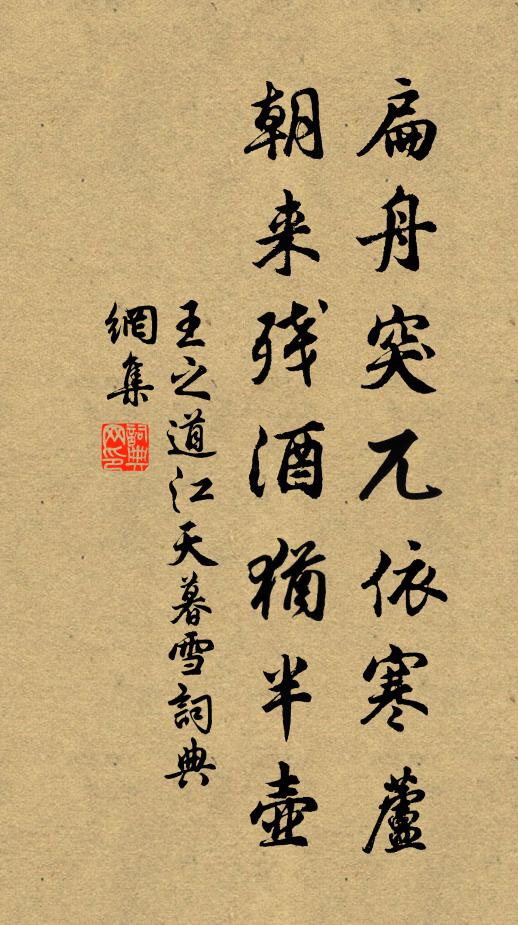 扁舟突兀依寒蘆
朝来残酒猶半壺
王之道江天暮雪詞典
網集
詞典网印